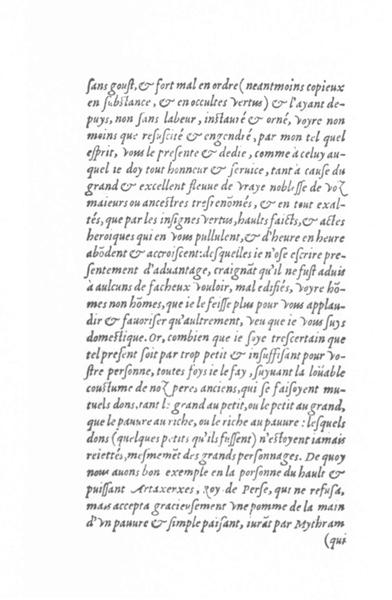 sans goust, & fort mal en ordre (neantmoins copieux
en substance, & en occultes vertus) & l'ayant de-
puys, non sans labeur, instauré & orné, voyre non
moins que resuscité & engendré, par mon tel quel
esprit, vous le presente & dedie, comme à celuy au-
quel ie doy tout honneur & service, tant à cause du
grand & excellent fleuue de vraye noblesse de voz
maieurs ou ancestres tresrenōmés, & en tout exal-
tés, que par les insignes vertus, haults faicts, & actes
heroiques qui en vous pullulent, & d'heure en heure
abōdent & accroiscent: desquelles ie n'ose escrire pre-
sentement d'aduantage, craignāt qu'il ne fust aduis
à aulcuns de facheux vouloir, mal edifiés, voyre hō-
mes non hōmes, que ie le feisse plus pour vous applau-
dir & fauoriser qu'aultrement, veu que ie vous suys
domestique. Or, combien que ie soye trescertain que
tel present soit par trop petit & insuffisant pour vo-
stre personne, toutes foys ie le fay, suyuant la loüable
coustume de noz peres anciens, qui se faisoyent mu-
tuels dons, tant le grand au petit, ou le petit au grand,
que le pauure au riche, ou le riche au pauure: lesquels
dons (quelques petits qu'ils fissent) n'estoyent iamais
reiettés, mesmemēt des grands personnages. De quoy
nous auons bon exemple en la porsonne du hault &
puissant Artaxerxes, Roy de Perse, qui ne refusa,
mais accepta gracieusement vne pomme de la main
d'vn pauure & simple paisant, iurāt par Mythram
(qui